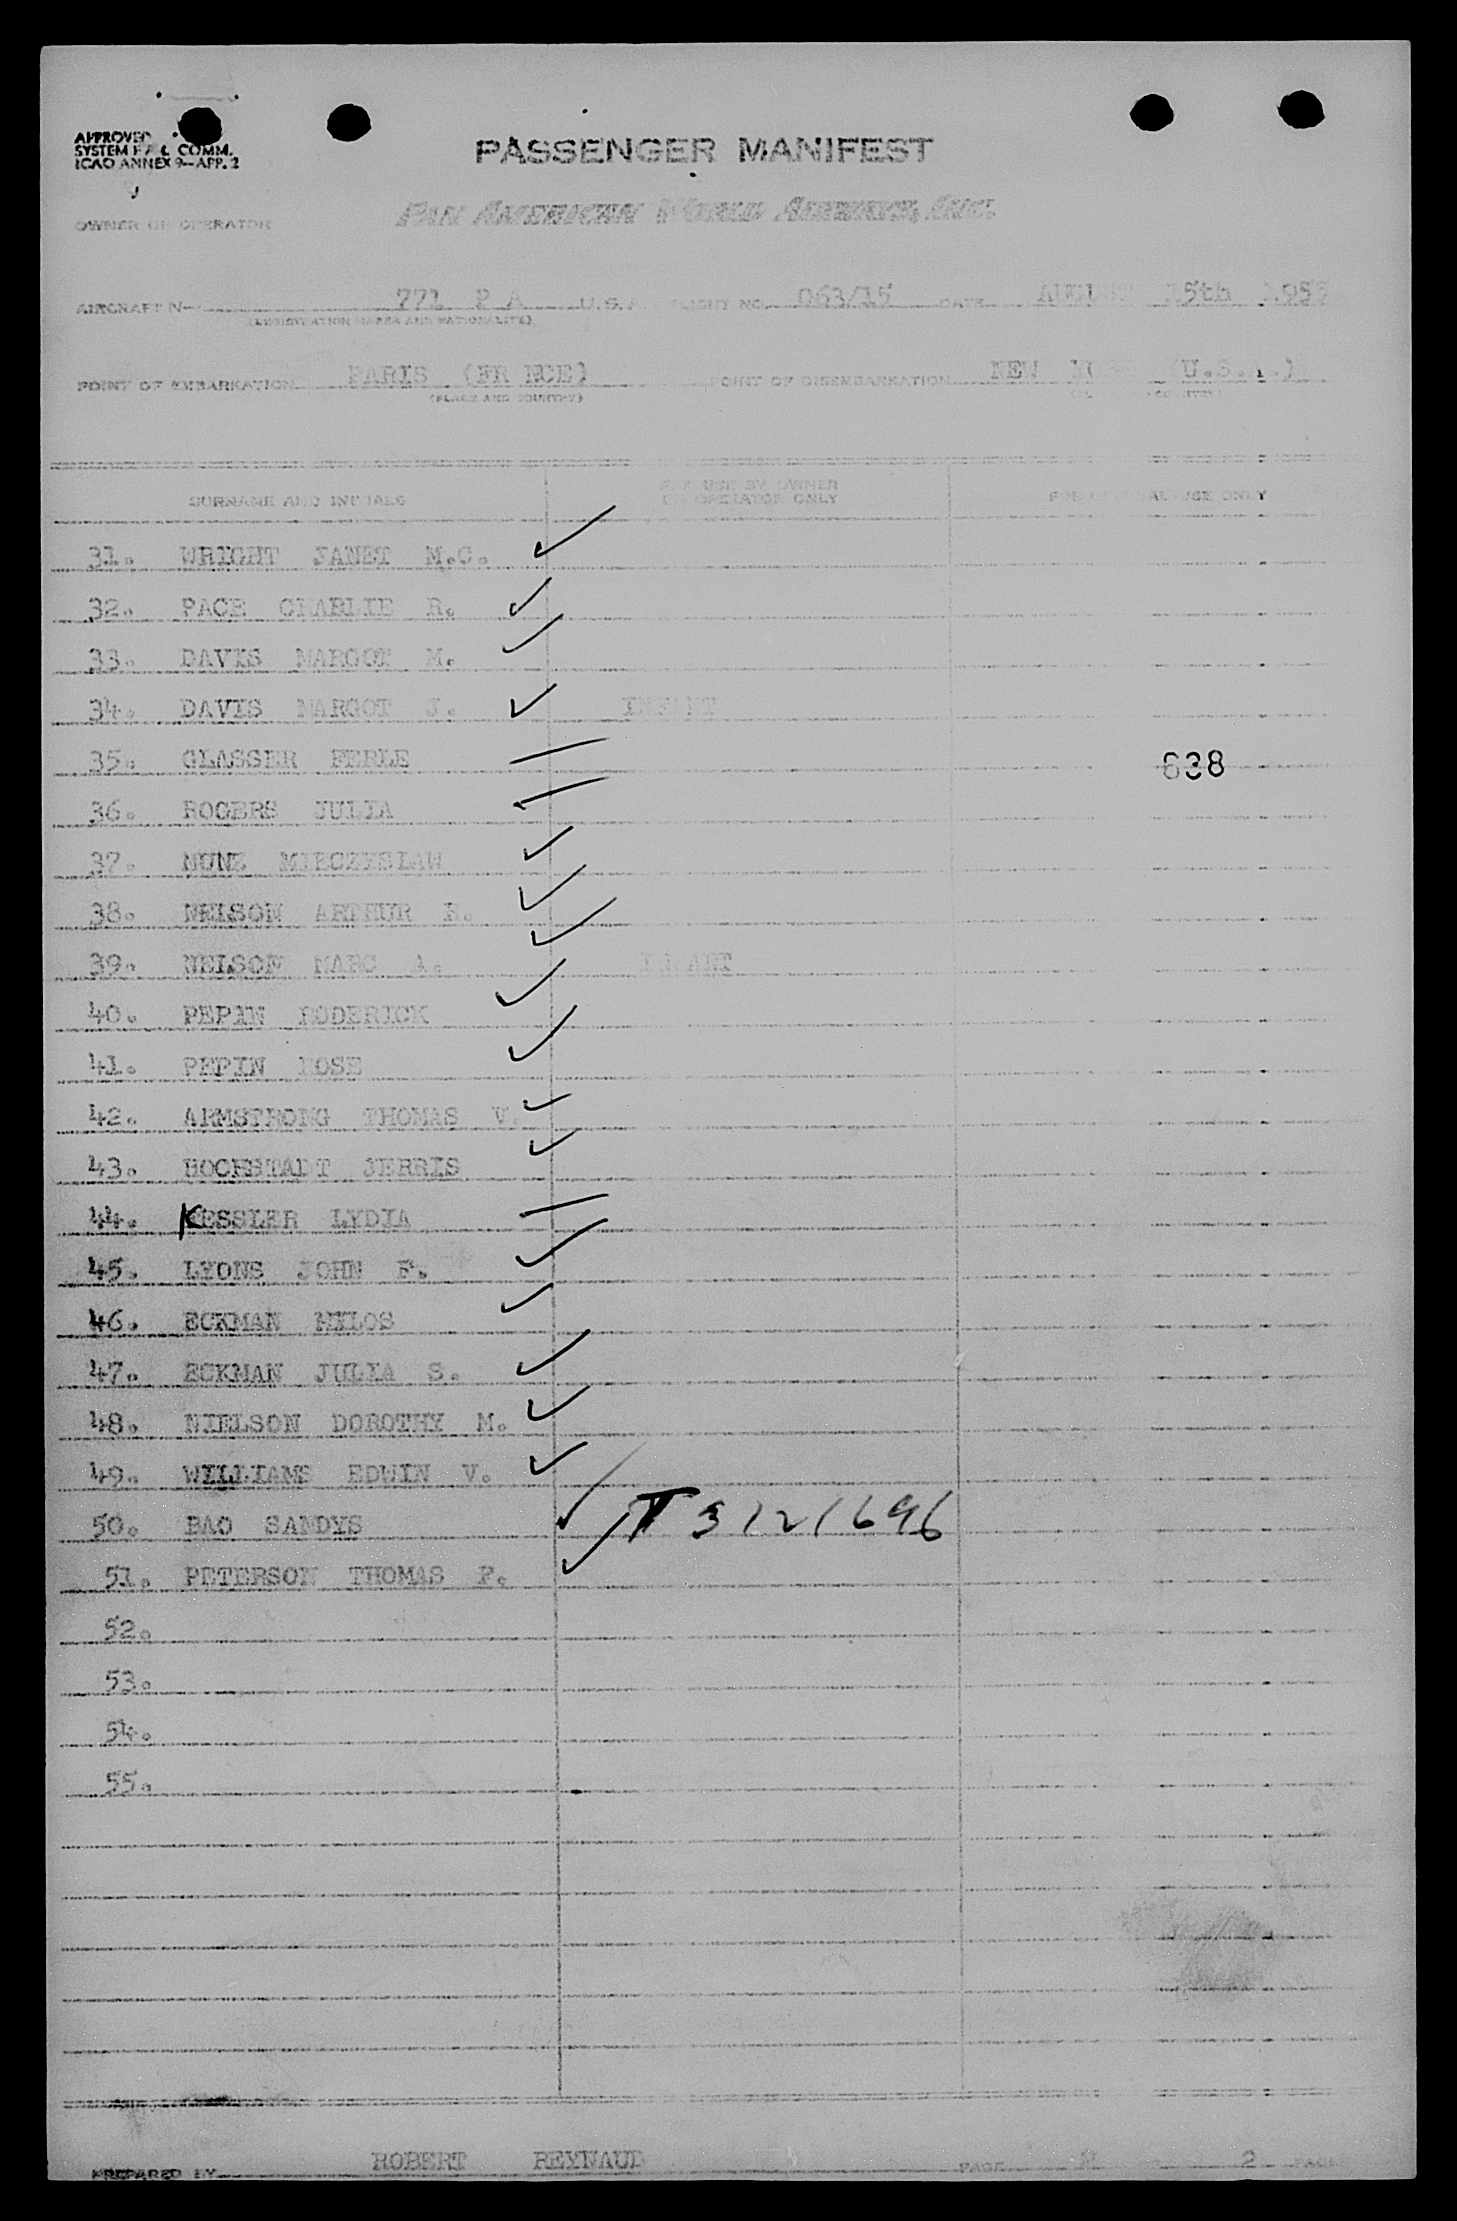 APPROVED
SYSTEM COMM.
ICAO ANNEX 9—APP. 2
PASSENGER MANIFEST
OWNER OR OPERATOR PAN AMERICAN WORLD AIRWAYS, INC.
AIRCRAFT N— 771 P A U.S. FLIGHT NO. 063/15 DATE 15th
(REGISTRATION MARKS AND NATIONALITY)
POINT OF EMBARKATION PARIS (FR NCE) POINT OF DISEMBARKATION NEW (U.S. .)
(PLACE AND COUNTRY)
SURNAME AND INITIALS FOR USE BY OWNER OR OPERATOR ONLY FOR USE ONLY
31. WRIGHT JANET M.C. ✓
32. PACE CHARLIE R. ✓
33. DAVIS MARGOT M. ✓
34. DAVIS MARGOT J. ✓ INFANT
35. GLASSER FERLE 638
36. ROGERS JULIA
37. MUNZ MIECZYSLAW ✓
38. NELSON ARTHUR R. ✓
39. NELSON MARC A. ✓ INFANT
40. PEPIN RODERICK ✓
41. PEPIN ROSE ✓
42. ARMSTRONG THOMAS V. ✓
43. HOCHSTADT JERRIS ✓
44. KESSLER LYDIA
45. LYONS JOHN F. ✓
46. ECKMAN MYLOS ✓
47. ECKMAN JULIA S. ✓
48. NIELSON DOROTHY M. ✓
49. WILLIAMS EDWIN V. ✓
50. BAO SANDYS ✓ T 3121696
51. PETERSON THOMAS F. ✓
52.
53.
54.
55.
PREPARED BY ROBERT REYNAUD PAGE 2